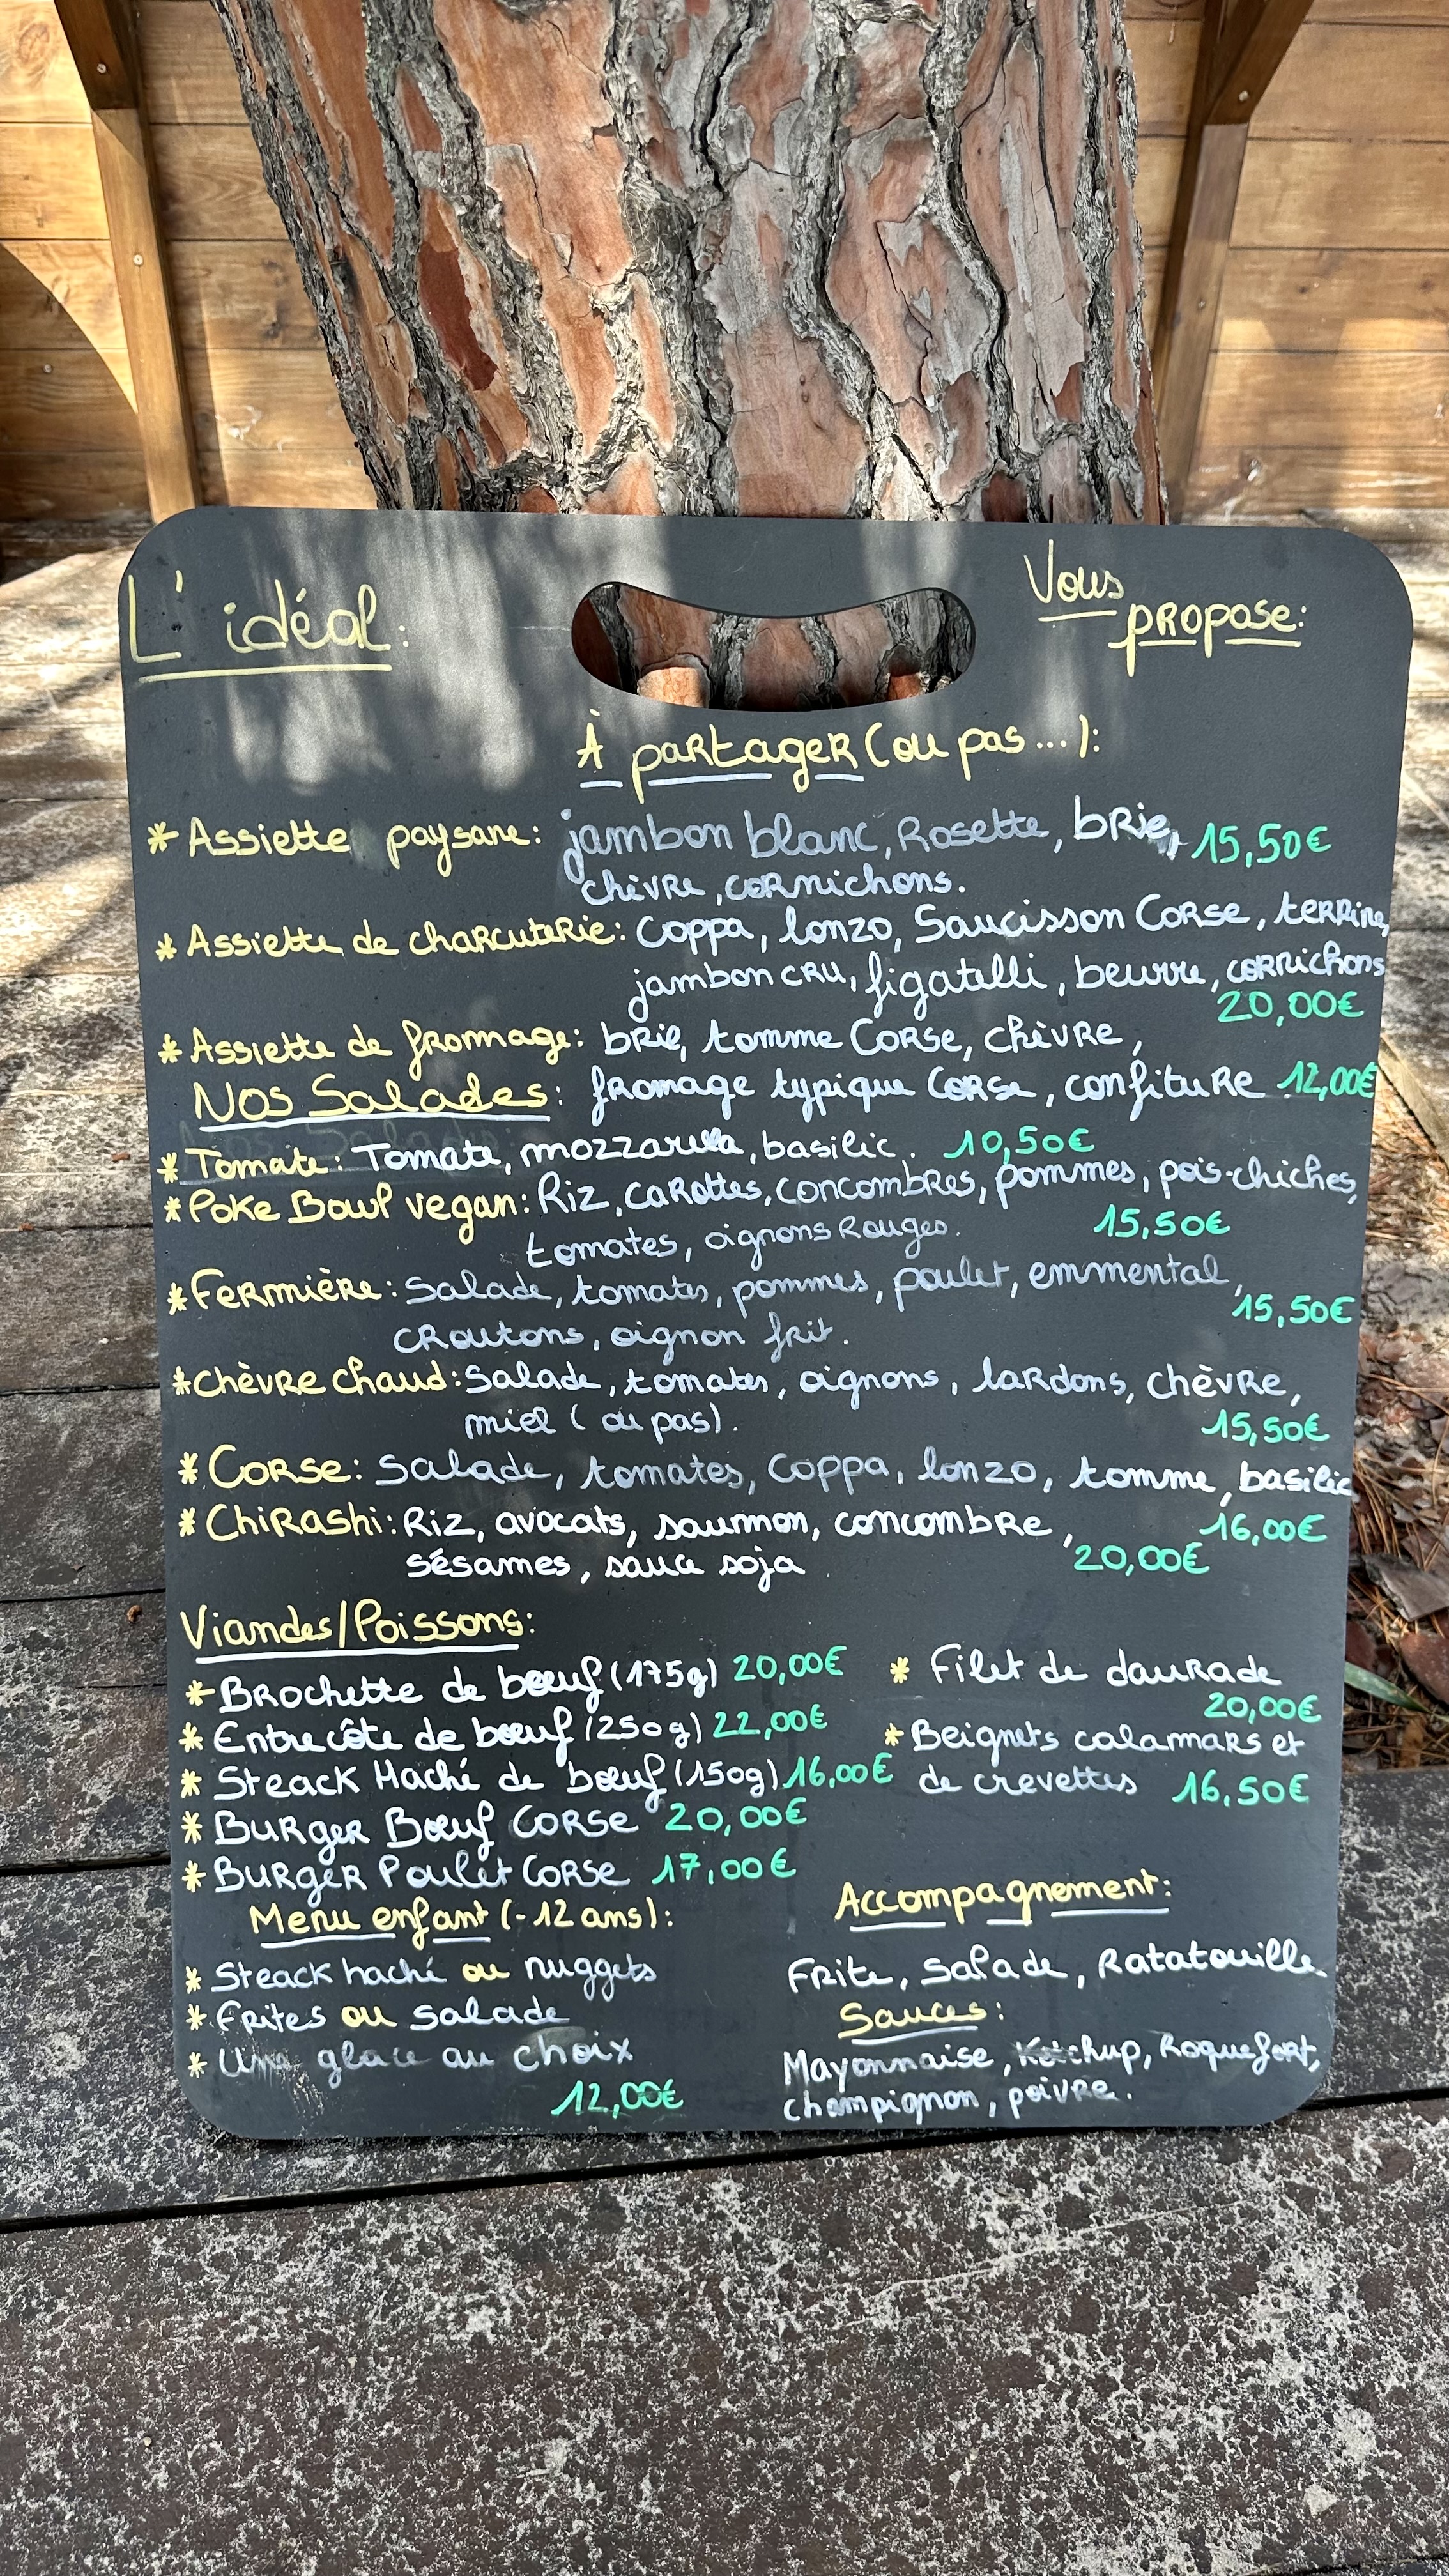 L'idéal:
Vous
propose:
À partager (ou pas...):
* Assiette paysane: jambon blanc, Rosette, brie, 15,50€
chèvre, cornichons.
* Assiette de charcuterie: Coppa, lonzo, Saucisson Corse, terrine,
jambon cru, figatelli, beurre, cornichons
20,00€
* Assiette de fromage: brie, tomme Corse, chèvre,
fromage typique Corse, confiture 12,00€
Nos Salades:
* Tomate: Tomate, mozzarella, basilic. 10,50€
* Poke Bowl vegan: Riz, carottes, concombres, pommes, pois-chiches,
tomates, oignons Rouges. 15,50€
* Fermière: Salade, tomates, pommes, poulet, emmental,
croutons, oignon frit. 15,50€
* Chèvre chaud: Salade, tomates, oignons, lardons, chèvre,
miel (ou pas). 15,50€
* Corse: Salade, tomates, coppa, lonzo, tomme, basilic
16,00€
* Chirashi: Riz, avocats, saumon, concombre,
sésames, sauce soja 20,00€
Viandes/Poissons:
* Brochette de bœuf (175g) 20,00€
* Entrecôte de bœuf (250g) 22,00€
* Steack Haché de bœuf (150g) 16,00€
* Burger Bœuf Corse 20,00€
* Burger Poulet Corse 17,00€
* Filet de daurade
20,00€
* Beignets calamars et
de crevettes 16,50€
Menu enfant (-12 ans):
* Steack haché ou nuggets
* Frites ou salade
* Une glace au choix
12,00€
Accompagnement:
Frite, Salade, Ratatouille
Sauces:
Mayonnaise, Ketchup, Roquefort,
champignon, poivre.